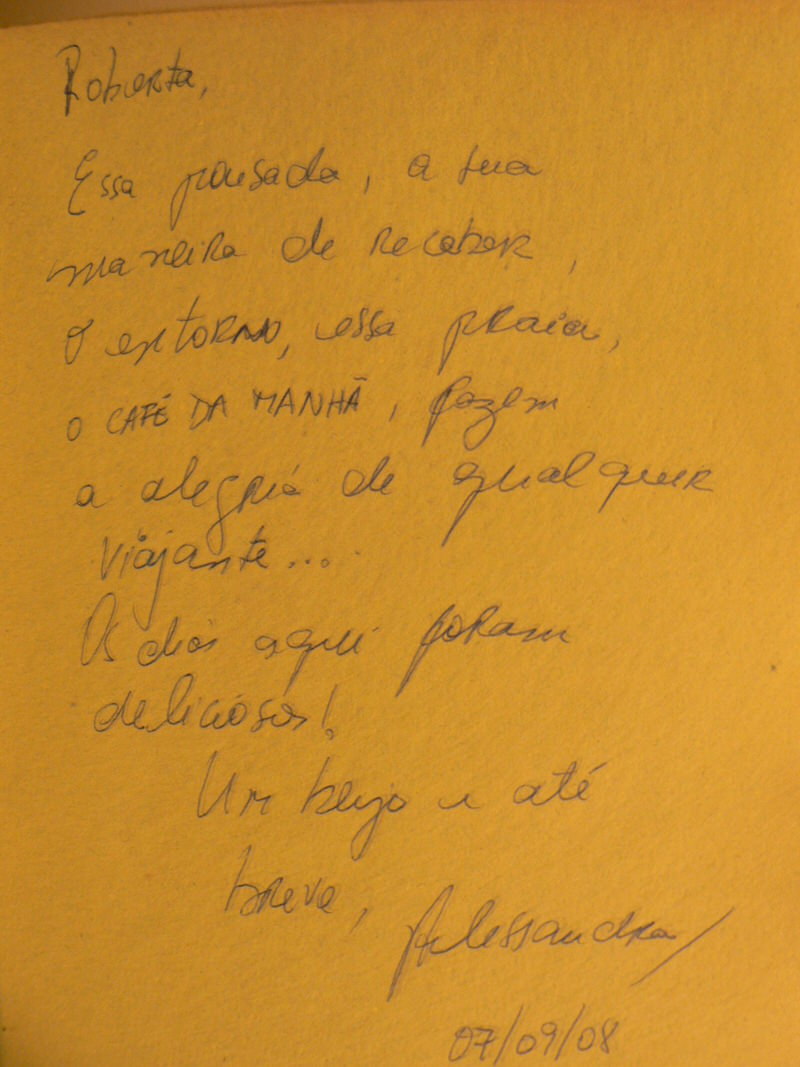 Roberta,
Essa pousada, a tua
maneira de receber,
o entorno, essa praia,
o CAFÉ DA MANHÃ, fazem
a alegria de qualquer
viajante...
Os dias aqui foram
deliciosos!
Um beijo e até
breve, Alessandra
07/09/08